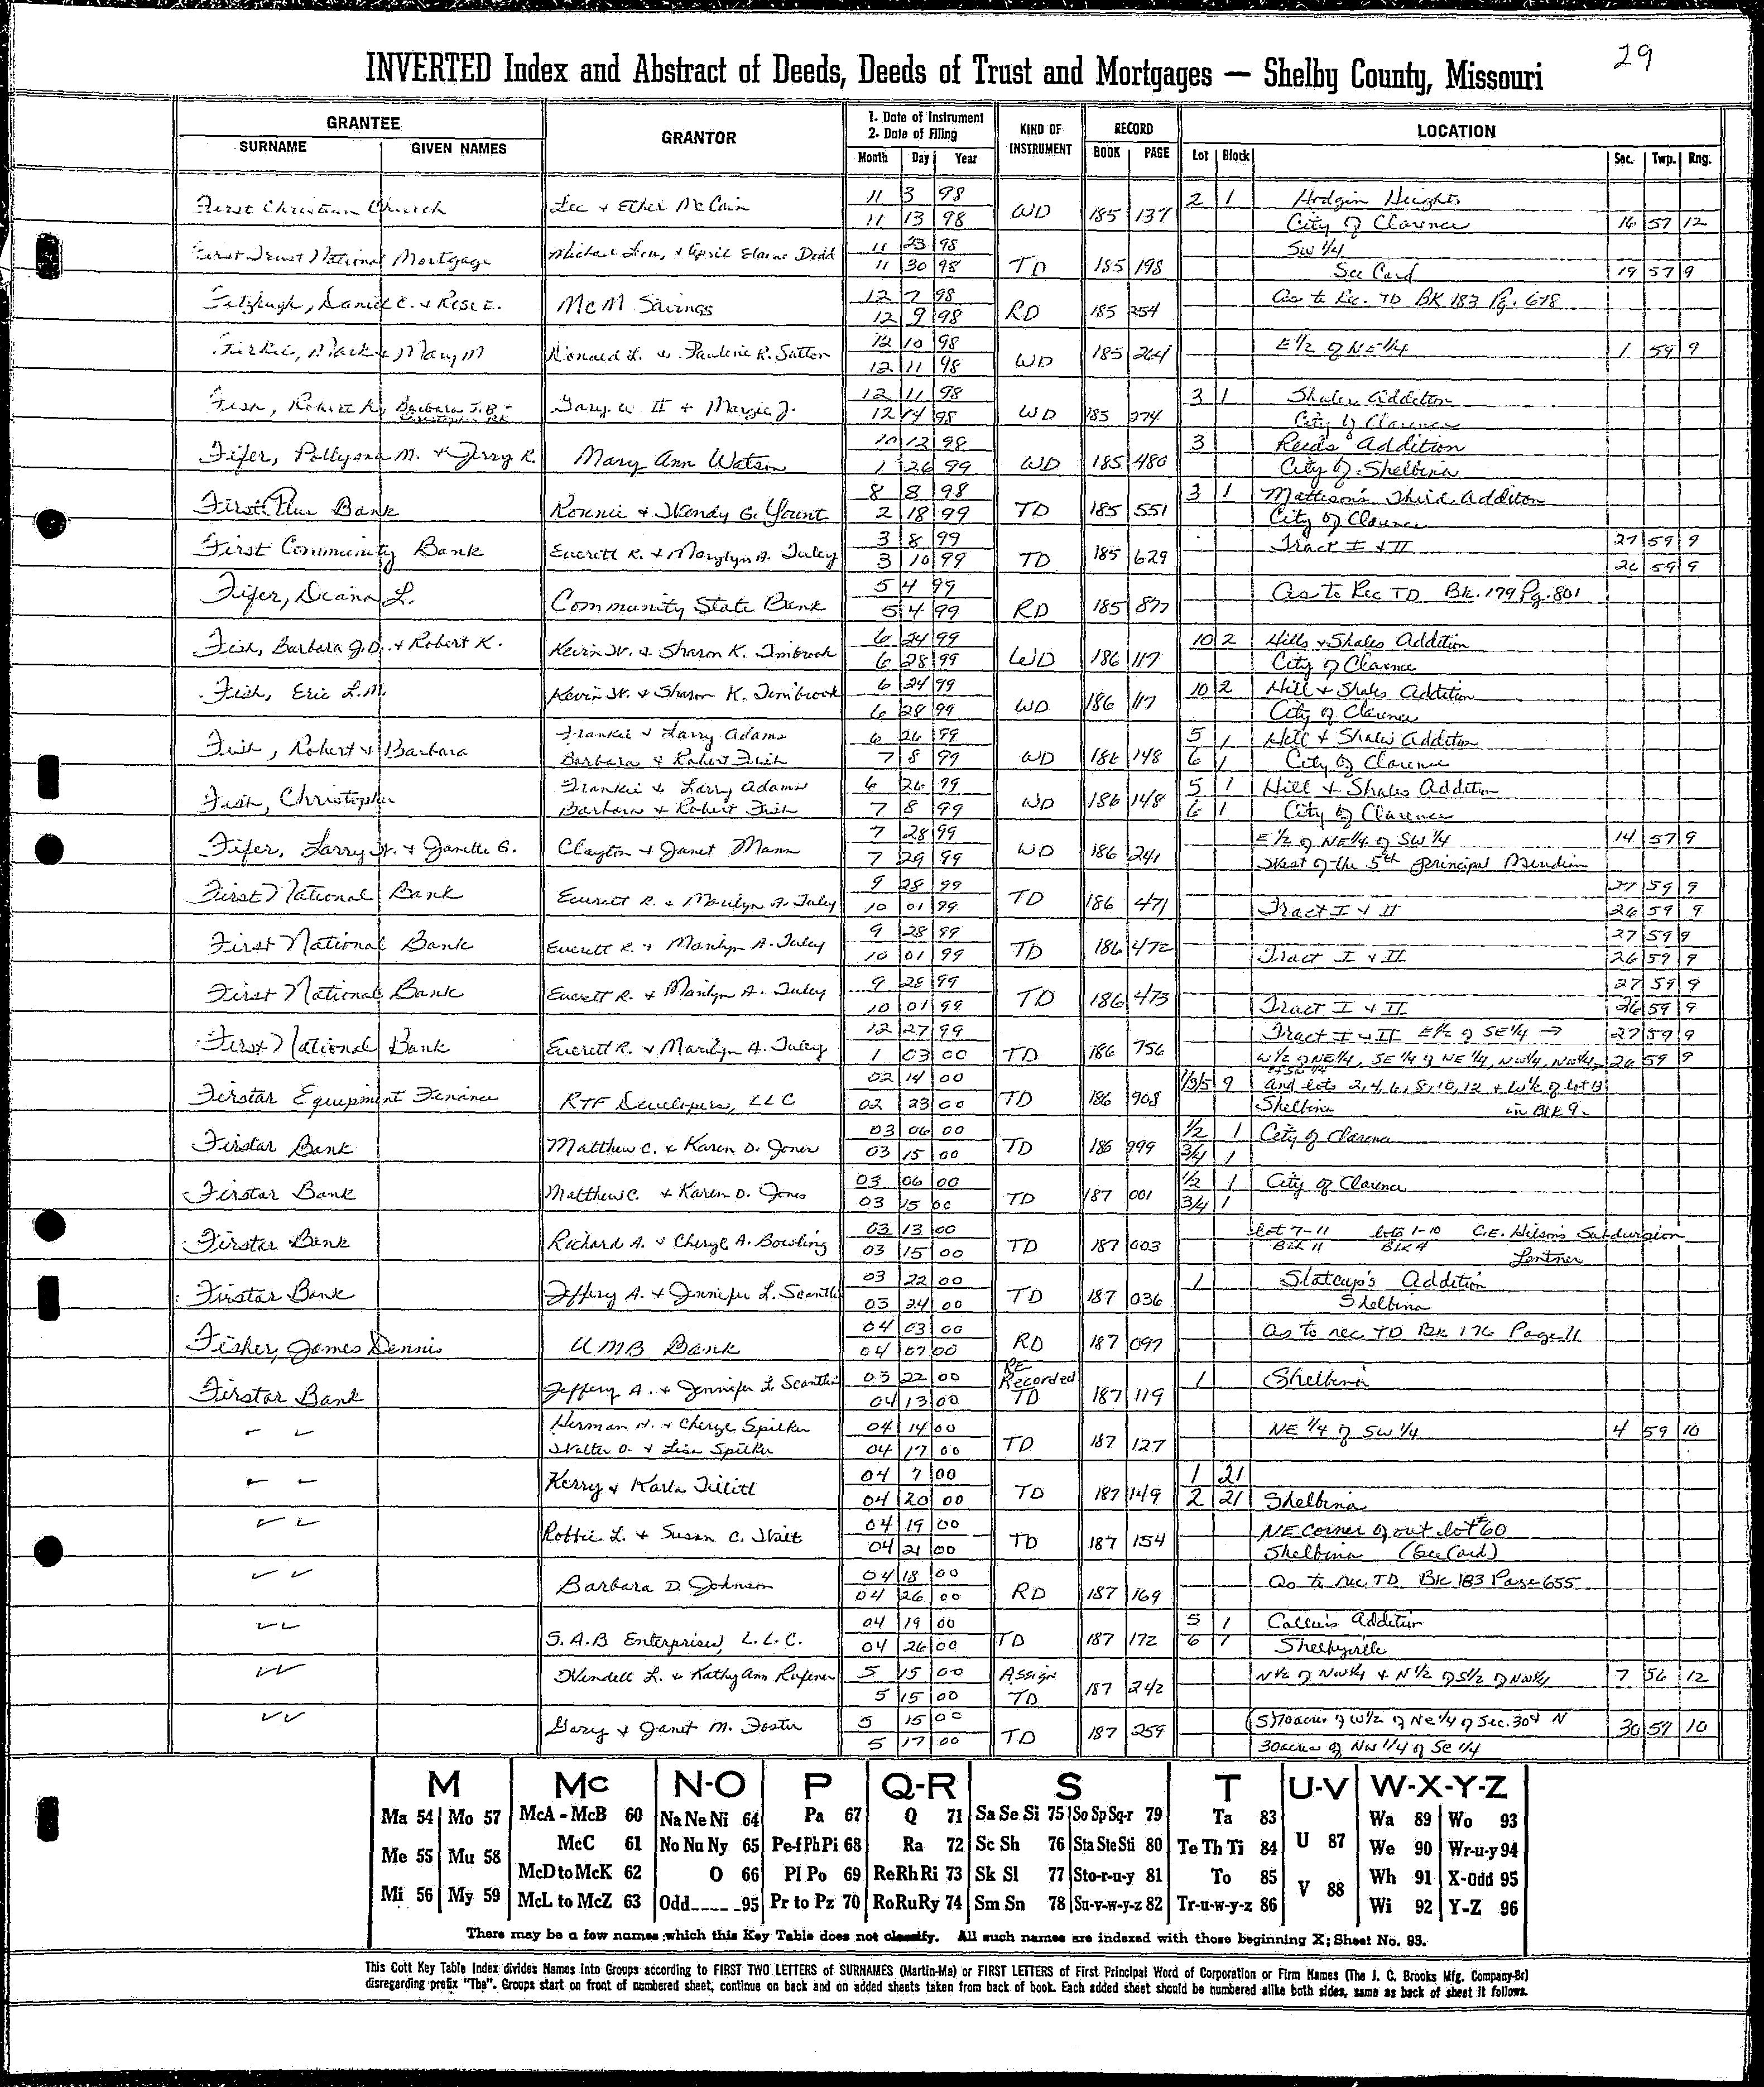 29
INVERTED Index and Abstract of Deeds, Deeds of Trust and Mortgages — Shelby County, Missouri
GRANTEE GRANTOR 1. Date of Instrument 2. Date of Filing KIND OF INSTRUMENT RECORD LOCATION
SURNAME GIVEN NAMES Month Day Year BOOK PAGE Lot Block Sec. Twp. Rng.
First Christian Church Lee & Ethel McCain 11 3 98 WD 185 137 2 1 Hodgin Heights
11 13 98 City of Clarence 16 57 12
First Trust National Mortgage Michael Leon, & April Elaine Dodd 11 23 98 TD 185 198 SW 1/4
11 30 98 See Card 19 57 9
Fitzhugh, Daniel C. & Rose E. McM Savings 12 7 98 RD 185 254 As to Rec. TD BK 183 Pg. 678
12 9 98
Mark & Mary M Ronald L. & Pauline R. Sutton 12 10 98 WD 185 264 E 1/2 of NE 1/4 1 59 9
12 11 98
Fish, Robert K, Barbara J.B. Gary W. II & Margie J. 12 11 98 WD 185 274 3 1 Shales Addition
12 14 98 City of Clarence
Fifer, Pollyanna M. & Jerry R. Mary Ann Watson 10 12 98 WD 185 480 3 Reeds Addition
1 26 99 City of Shelbina
First Plus Bank Ronnie & Wendy G. Yount 8 8 98 TD 185 551 3 1 Mattison's Third Additon
2 18 99 City of Clarence
First Community Bank Everett R. & Marylyn A. Tuley 3 8 99 TD 185 629 Tract I & II 27 59 9
3 10 99 26 59 9
Fifer, Deana L. Community State Bank 5 4 99 RD 185 877 As to Rec TD Bk. 179 Pg. 801
5 4 99
Fish, Barbara J.D. & Robert K. Kevin W. & Sharon K. Timbrook 6 24 99 WD 186 117 10 2 Hills & Shales Addition
6 28 99 City of Clarence
Fish, Eric L.M. Kevin W. & Sharon K. Timbrook 6 24 99 WD 186 117 10 2 Hill & Shales Addition
6 28 99 City of Clarence
Fish, Robert & Barbara Frankie & Larry Adams 6 26 99 WD 186 148 5 1 Hill & Shales Addition
Barbara & Robert Fish 7 8 99 6 1 City of Clarence
Fish, Christopher Frankie & Larry Adams 6 26 99 WD 186 148 5 1 Hill & Shales Addition
Barbara & Robert Fish 7 8 99 6 1 City of Clarence
Fifer, Larry W. & Janette G. Clayton & Janet Mann 7 28 99 WD 186 241 E 1/2 of NE 1/4 of SW 1/4 14 57 9
7 29 99 West of the 5th principal Meridian
First National Bank Everett R. & Marilyn A. Tuley 9 28 99 TD 186 471 27 59 9
10 01 99 Tract I & II 26 59 9
First National Bank Everett R. & Marilyn A. Tuley 9 28 99 TD 186 472 27 59 9
10 01 99 Tract I & II 26 59 9
First National Bank Everett R. & Marilyn A. Tuley 9 28 99 TD 186 473 27 59 9
10 01 99 Tract I & II 26 59 9
First National Bank Everett R. & Marilyn A. Tuley 12 27 99 TD 186 756 Tract I & II E 1/2 of SE 1/4 → 27 59 9
1 03 00 W 1/2 of NE 1/4, SE 1/4 of NE 1/4, NW 1/4, 26 59 9
Firstar Equipment Finance RTF Developers, LLC 02 14 00 TD 186 908 1/3/5 9 And lots 2, 4, 6, 8, 10, 12 & W 1/2 of lot 13
02 23 00 Shelbina in Blk 9
Firstar Bank Matthew C. & Karen D. Jones 03 06 00 TD 186 999 1/2 1 City of Clarence
03 15 00 3/4 1
Firstar Bank Matthew C. & Karen D. Jones 03 06 00 TD 187 001 1/2 1 City of Clarence
03 15 00 3/4 1
Firstar Bank Richard A. & Cheryl A. Bowling 03 13 00 TD 187 003 Lot 7-11 Lots 1-10 C.E. Wilson's Subdivision
03 15 00 Blk 11 Blk 4 Lentner
Firstar Bank Jeffery A. & Jennifer L. Scantlin 03 22 00 TD 187 036 1 Slateup's Addition
03 24 00 Shelbina
Fisher, James Dennis UMB Bank 04 03 00 RD 187 097 As to rec TD Bk 176 Page 11
04 07 00
Firstar Bank Jeffery A. & Jennifer L. Scantlin 03 22 00 RE Recorded TD 187 119 1 Shelbina
04 13 00
Herman H. & Cheryl Spilker 04 14 00 TD 187 127 NE 1/4 of SW 1/4 4 59 10
Walter O. & Lisa Spilker 04 17 00
Kerry & Karla Tillitt 04 7 00 TD 187 149 1 21
04 20 00 2 21 Shelbina
Robbie L. & Susan C. Wait 04 19 00 TD 187 154 NE Corner of out lot #60
04 21 00 Shelbina (See Card)
Barbara D. Johnson 04 18 00 RD 187 169 As to rec TD Bk 183 Page 655
04 26 00
S.A.B Enterprises, L.L.C. 04 19 00 TD 187 172 5 1 Addition
04 26 00 6 1 Shelbyville
Wendell L. & Kathy Ann Rafener 5 15 00 Assign TD 187 242 N 1/2 of NW 1/4 & N 1/2 of S 1/2 of NW 1/4 7 56 12
5 15 00
Gary & Janet M. Foster 5 15 00 TD 187 259 (S) 70 acres of W 1/2 of Ne 1/4 of Sec. 30 & N 30 57 10
5 17 00 30 acres of NW 1/4 of Se 1/4
M Mc N-O P Q-R S T U-V W-X-Y-Z
Ma 54 Mo 57 McA - McB 60 Na Ne Ni 64 Pa 67 Q 71 Sa Se Si 75 So Sp Sq-r 79 Ta 83 Wa 89 Wo 93
Me 55 Mu 58 McC 61 No Nu Ny 65 Pe-f Ph Pi 68 Ra 72 Sc Sh 76 Sta Ste Sti 80 Te Th Ti 84 U 87 We 90 Wr-u-y 94
McD to McK 62 O 66 Pl Po 69 Re Rh Ri 73 Sk Sl 77 Sto-r-u-y 81 To 85 V 88 Wh 91 X-Odd 95
Mi 56 My 59 McL to McZ 63 Odd 95 Pr to Pz 70 Ro Ru Ry 74 Sm Sn 78 Su-v-w-y-z 82 Tr-u-w-y-z 86 Wi 92 Y-Z 96
There may be a few names which this Key Table does not classify. All such names are indexed with those beginning X; Sheet No. 95.
This Cott Key Table Index divides Names into Groups according to FIRST TWO LETTERS of SURNAMES (Martin-Ma) or FIRST LETTERS of First Principal Word of Corporation or Firm Names (The J. C. Brooks Mfg. Company-Br)
disregarding prefix "The". Groups start on front of numbered sheet, continue on back and on added sheets taken from back of book. Each added sheet should be numbered alike both sides, same as back of sheet it follows.